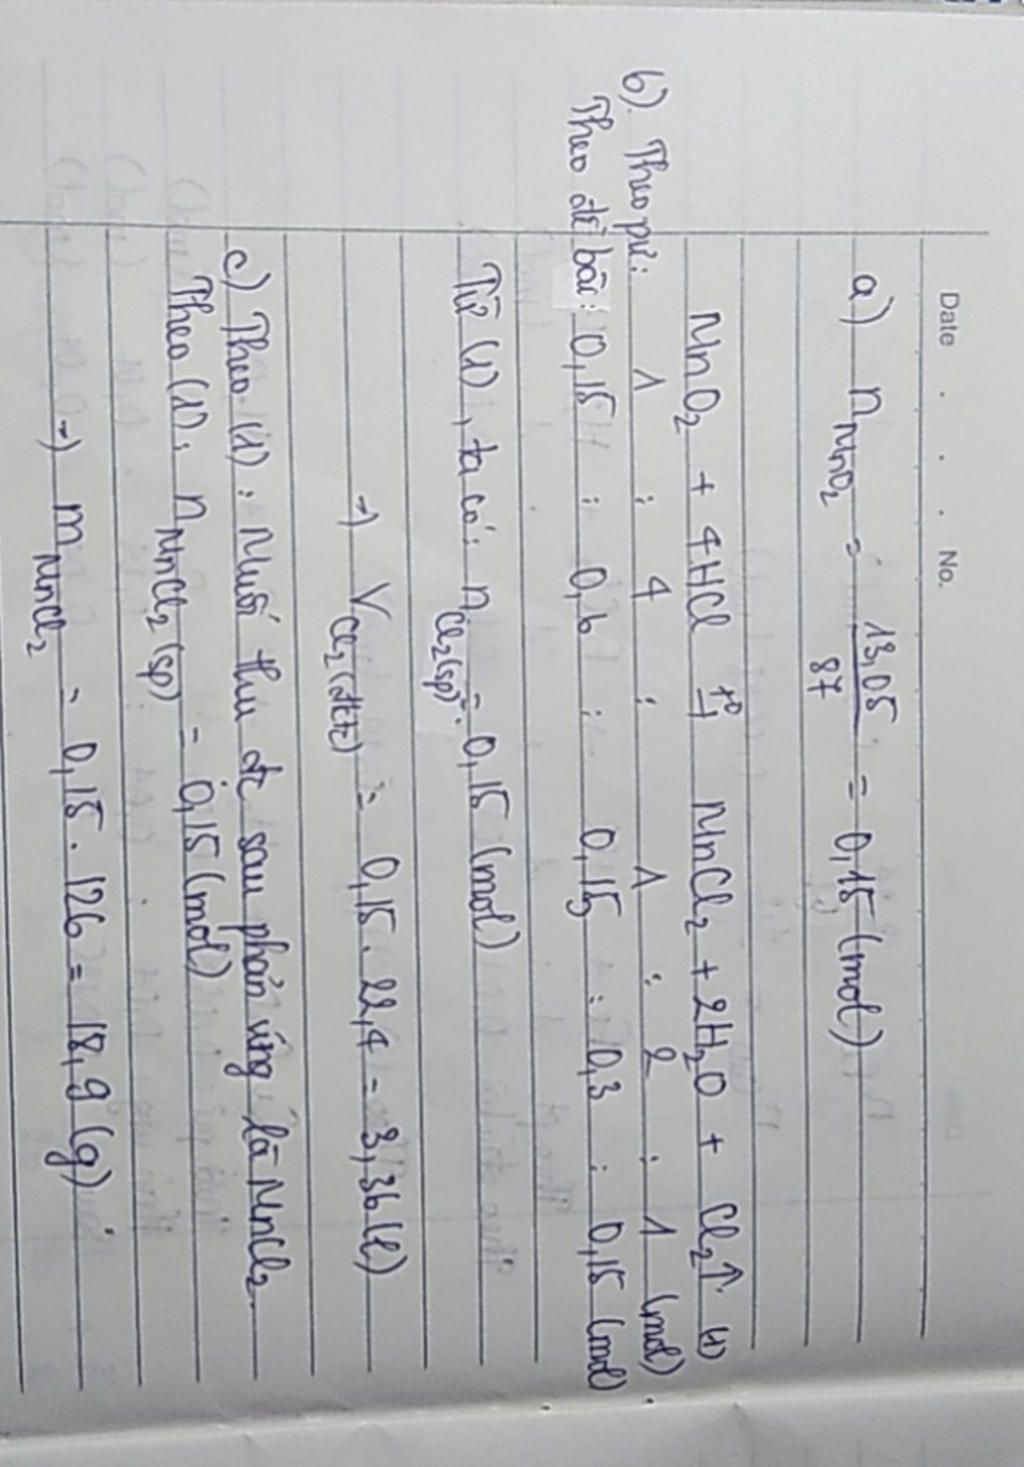 Date . . . No.
a) nMnO₂ = 13,05/87 = 0,15 (mol)
MnO₂ + 4HCl –t°→ MnCl₂ + 2H₂O + Cl₂↑ (1)
b). Theo pư: 1 : 4 : 1 : 2 : 1 (mol).
Theo đề bài: 0,15 : 0,6 : 0,15 : 0,3 : 0,15 (mol)
Từ (1), ta có: nCl₂(sp) = 0,15 (mol)
→ VCl₂(đktc) = 0,15 . 22,4 = 3,36 (l)
c) Theo (1): Muối thu đc sau phản ứng là MnCl₂.
Theo (1): nMnCl₂(sp) = 0,15 (mol)
→ mMnCl₂ = 0,15 . 126 = 18,9 (g)